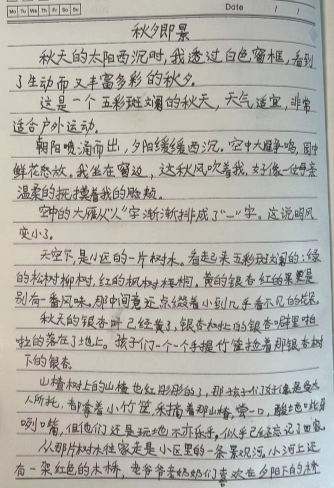 Mo Tu We Th Fr Sa Su
Date / /
秋夕即景
秋天的太阳西沉时,我透过白色窗框,看到
了生动而又丰富多彩的秋夕。
这是一个五彩斑斓的秋天,天气适宜,非常
适合户外运动。
朝阳喷滴而出,夕阳缓缓西沉。空中大雁争鸣,园中
鲜花怒放。我坐在窗边,这秋风吹着我,好像一位母亲
温柔的抚摸着我的脸颊。
空中的大雁从“人”字渐渐排成了“一”字。这说明风
变小了。
天空下,是小区的一片树木。看起来五彩斑斓的:绿
的松树柳树,红的枫树梧桐,黄的银杏红的果更是
别有一番风味,那中间竟还点缀着小到几乎看不见的花朵。
秋天的银杏叶已经黄了,银杏和壮的银杏噼里啪
啦的落在了地上。孩子们一个一个手握竹筐捡着那银杏树
下的银杏。
山楂树上的山楂也红彤彤的了,那孩子们好像是受
人所托,都拿着小竹筐,采摘着那山楂,尝一口,酸
咧口嘴,但他们还是玩地不亦乐乎。似乎已经忘记了回家。
从那片树木往家走是小区里的一条景观河,小河上还
有一架红色的木桥,老爷爷老奶奶们喜欢在夕阳下的桥